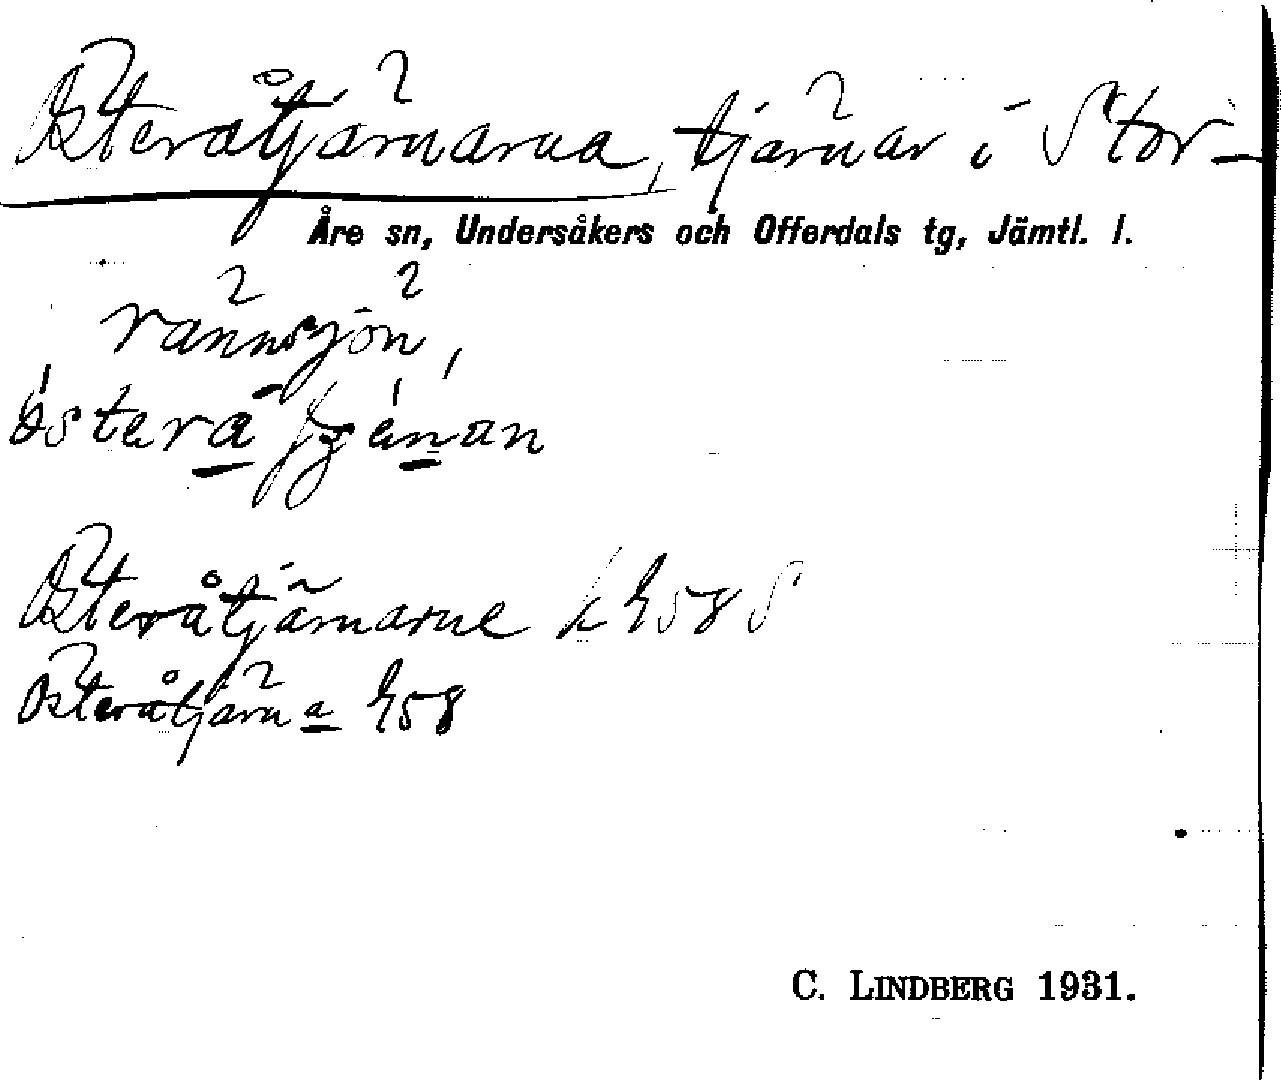 Österåtjärnarna, tjärnar i Stor-
Åre sn, Undersåkers och Offerdals tg, Jämtl. l.
rännsjön,
Österåtjärnarne k 458 S
Österåtjärna 458
C. LINDBERG 1931.